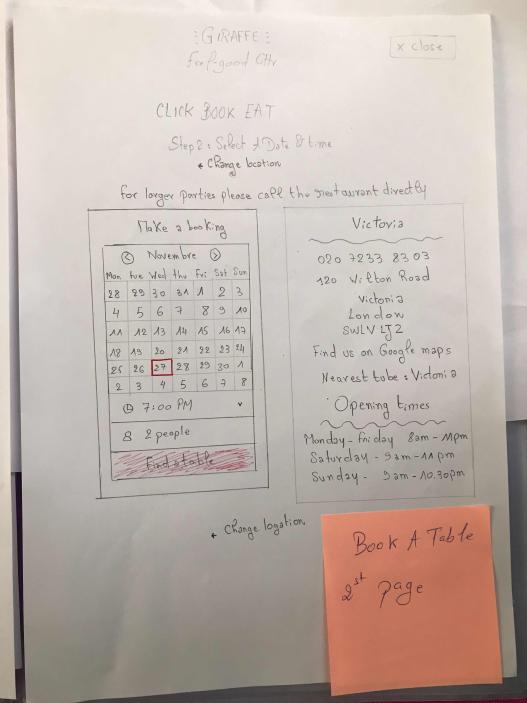 GIRAFFE
Feel-good
x close
CLICK BOOK EAT
Step 2: Select A Date & time
Change location
for larger parties please call the restaurant directly
Make a booking
< Novembre >
Mon Tue Wed Thu Fri Sat Sun
28 29 30 31 1 2 3
4 5 6 7 8 9 10
11 12 13 14 15 16 17
18 19 20 21 22 23 24
25 26 27 28 29 30 1
2 3 4 5 6 7 8
7:00 PM
2 people
Find a table
Victoria
020 7233 8303
120 Wilton Road
Victoria
London
SWLV LJZ
Find us on Google maps
Nearest tube: Victoria
Opening times
Monday - friday 8am - 11pm
Saturday - 9am - 11pm
Sunday - 9am - 10.30pm
Change location
Book A Table
2st page